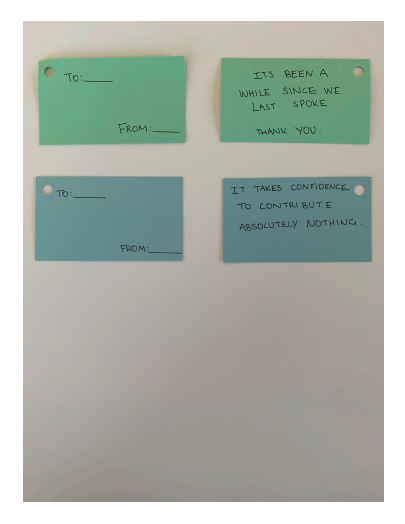 TO:____
FROM:____
IT'S BEEN A
WHILE SINCE WE
LAST SPOKE.
THANK YOU.
TO:____
FROM:____
IT TAKES CONFIDENCE
TO CONTRIBUTE
ABSOLUTELY NOTHING.